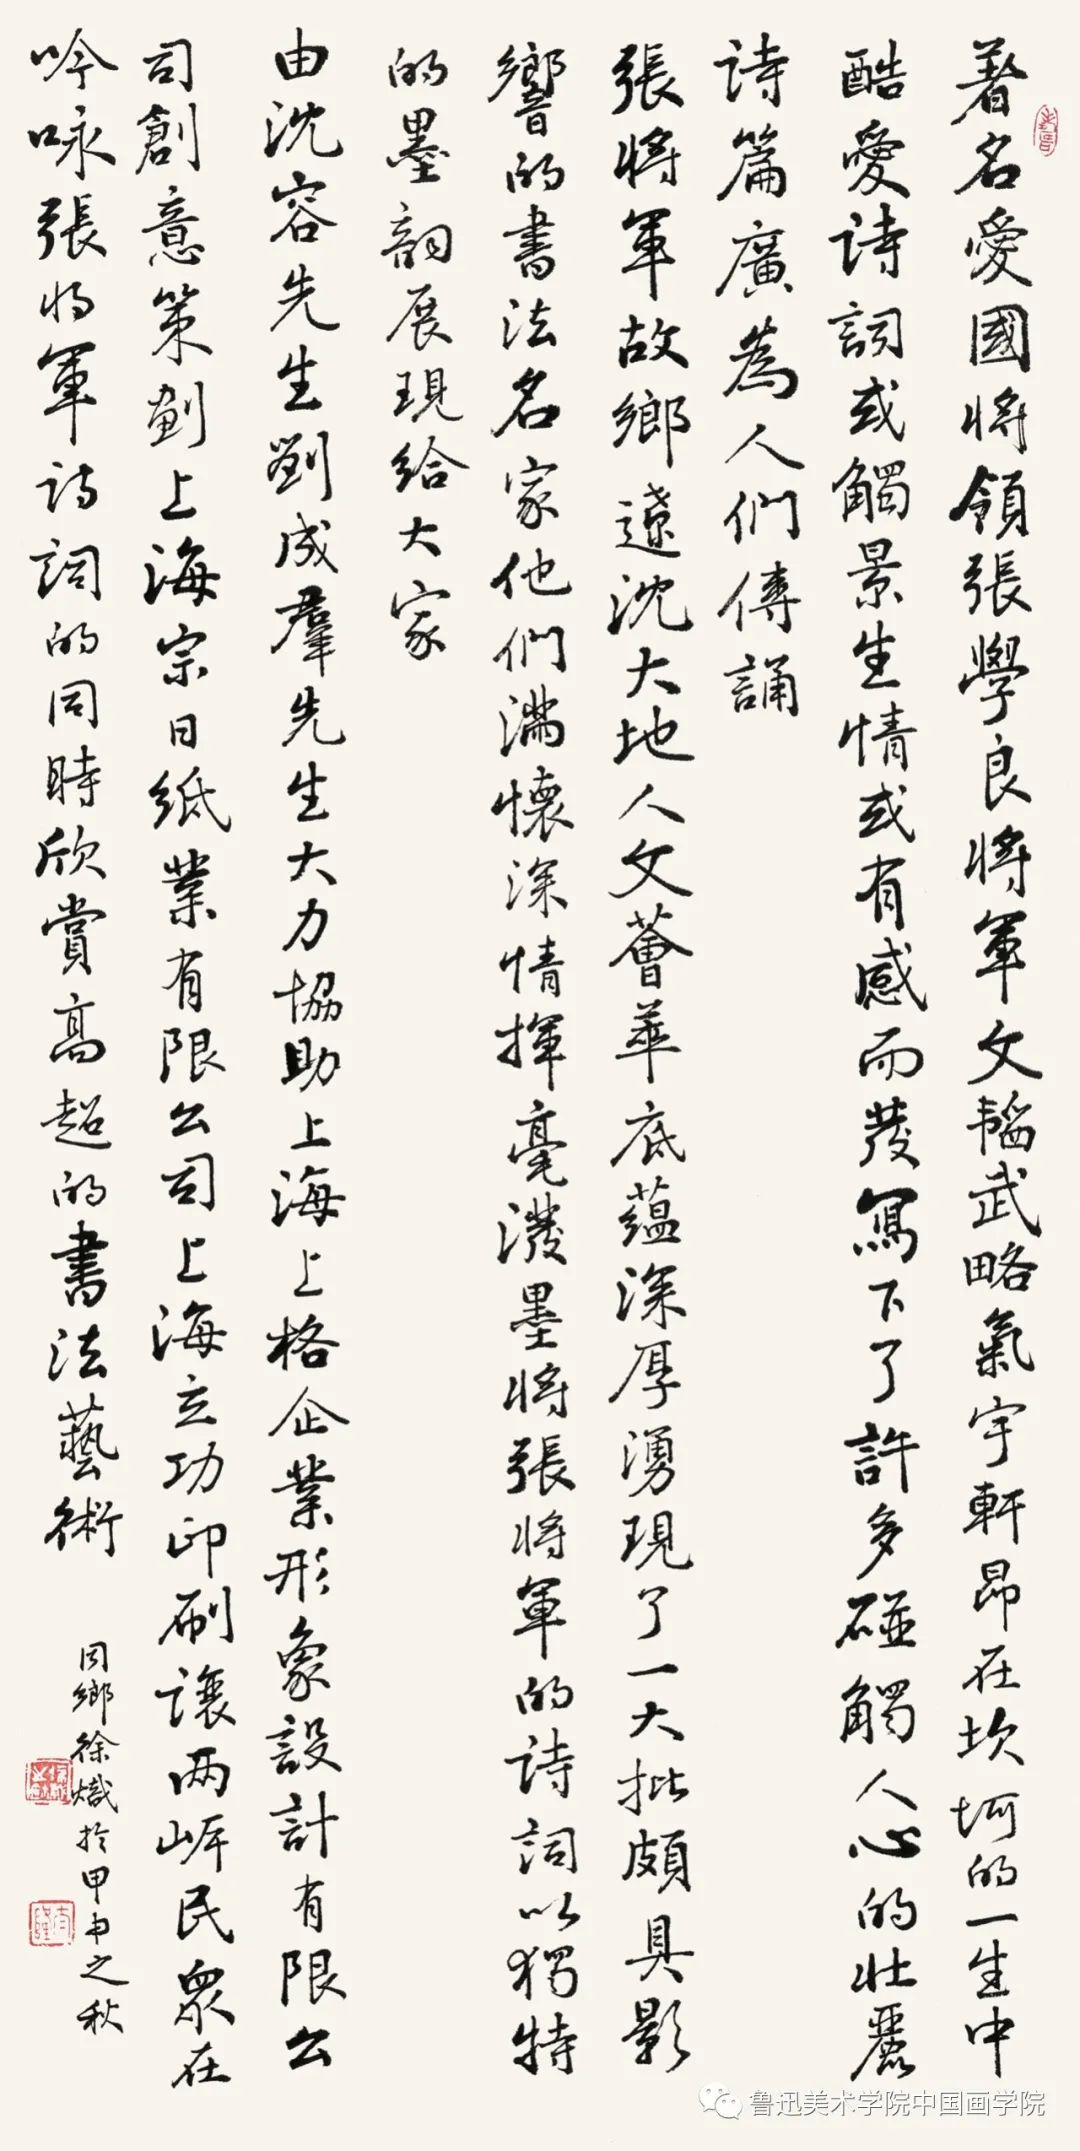 著名愛國將領張學良將軍文韜武略氣宇軒昂在坎坷的一生中
酷愛詩詞或觸景生情或有感而發寫下了許多碰觸人心的壯麗
詩篇廣為人們傳誦
張將軍故鄉遼沈大地人文薈萃底蘊深厚湧現了一大批頗具影
響的書法名家他們滿懷深情揮毫潑墨將張將軍的詩詞以獨特
的墨韻展現給大家
由沈容先生劉成群先生大力協助上海上格企業形象設計有限公
司創意策劃上海宗日紙業有限公司上海立功印刷讓兩岸民眾在
吟咏張將軍詩詞的同時欣賞高超的書法藝術
同鄉徐熾於甲申之秋
鲁迅美术学院中国画学院